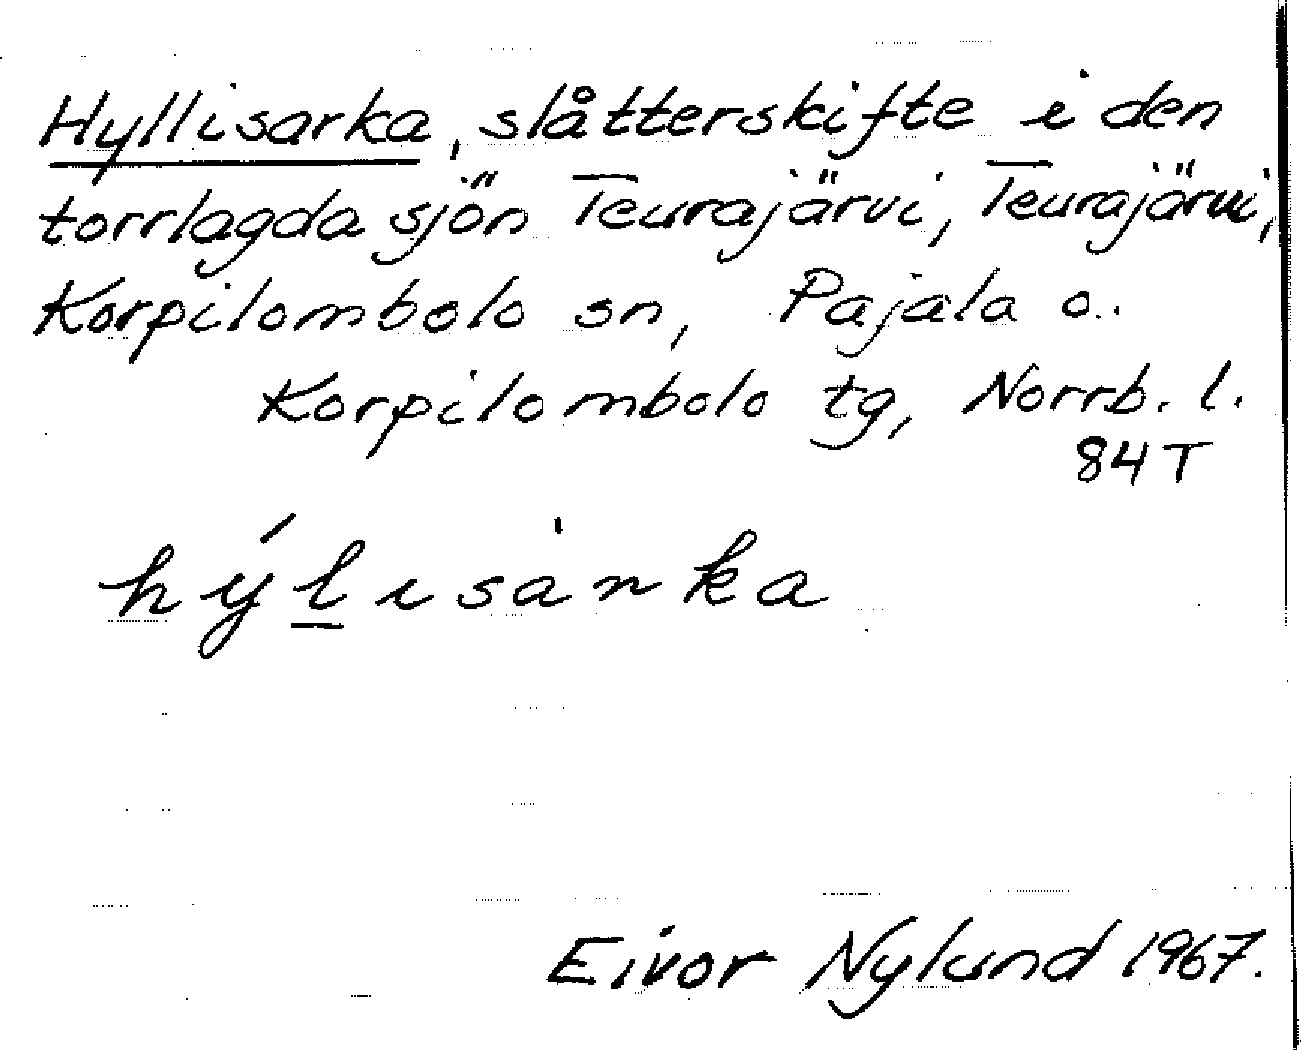 Hyllisarka, slåtterskifte i den
torrlagda sjön Teurajärvi, Teurajärvi,
Korpilombolo sn, Pajala o.
Korpilombolo tg, Norrb. l.
84 T
hýl̲ısȧrka
Eivor Nylund 1967.